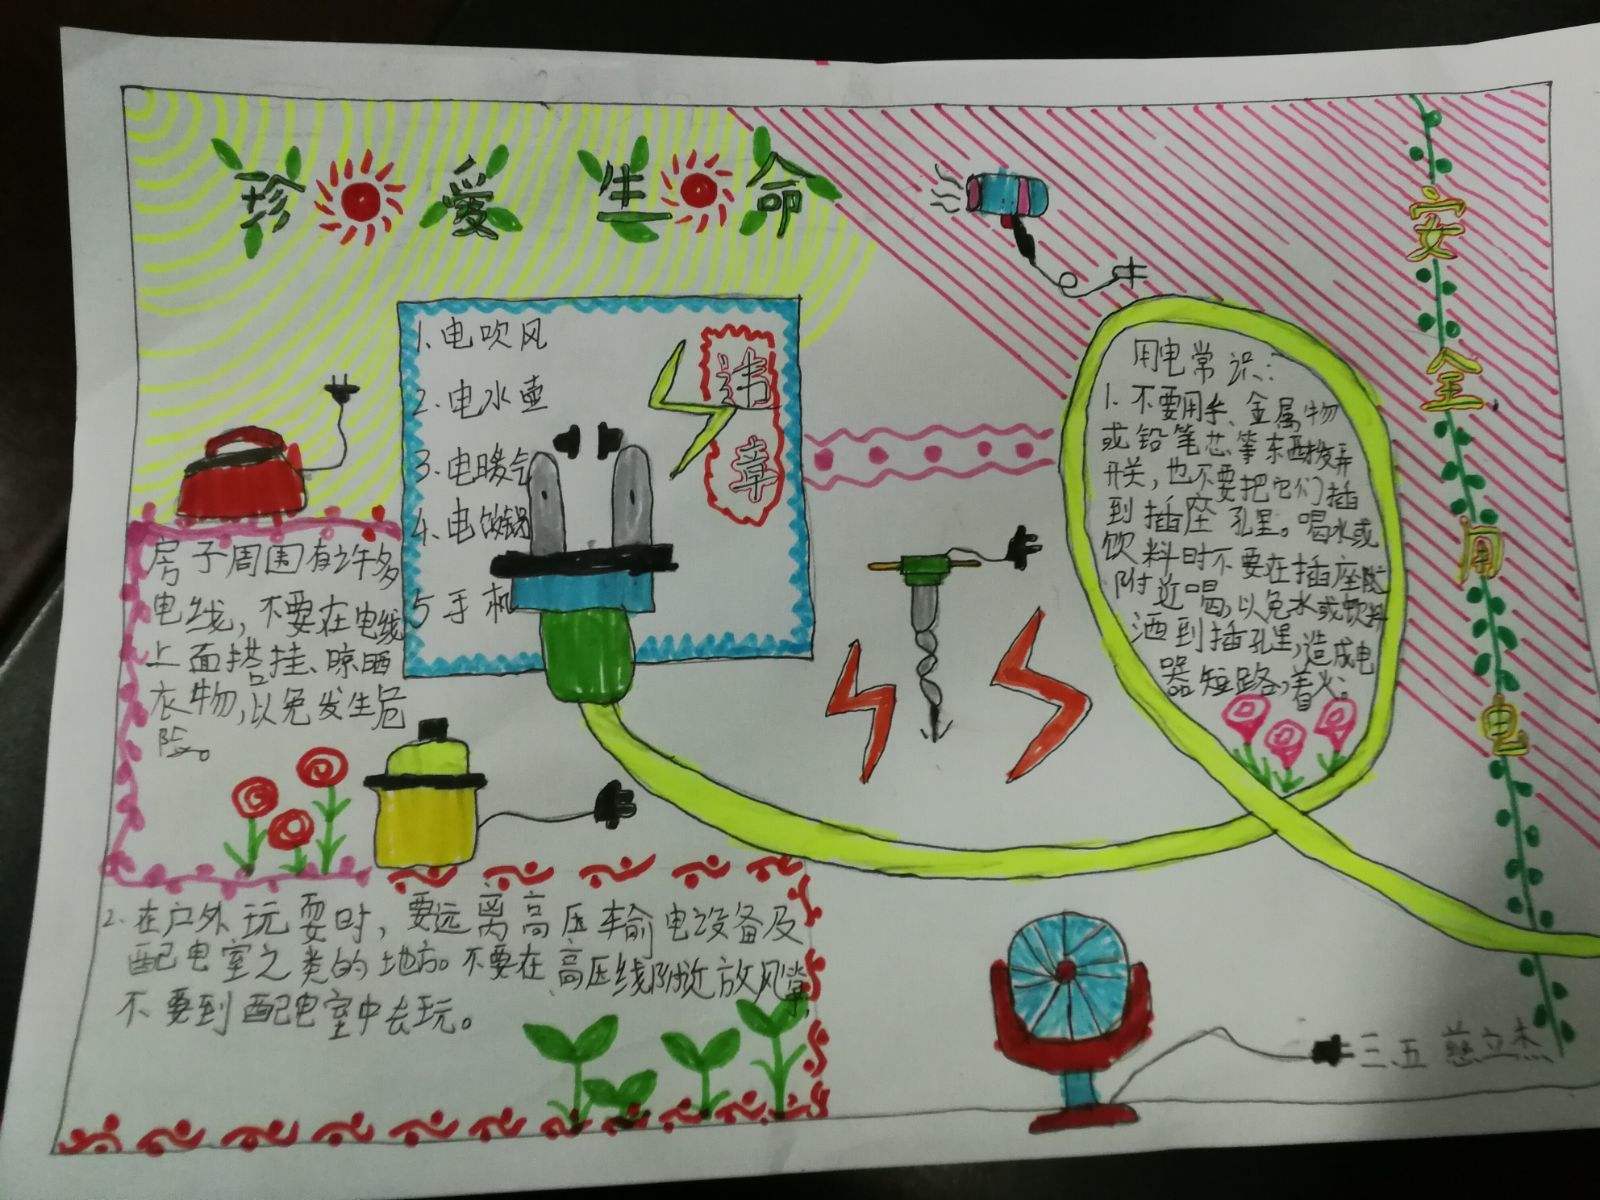 珍爱生命
安全用电
1.电吹风
2.电水壶
3.电暖气
4.电饭锅
5手机
违章
用电常识:
1.不要用手、金属物
或铅笔芯等东西拨弄
开关,也不要把它们插
到插座孔里。喝水或
饮料时不要在插座
附近喝,以免水或饮料
洒到插孔里,造成电
器短路,着火。
房子周围有许多
电线,不要在电线
上面搭挂、晾晒
衣物,以免发生危
险。
2.在户外玩耍时,要远离高压输电设备及
配电室之类的地方。不要在高压线附近放风筝
不要到配电室中去玩。
三.五 慈立杰